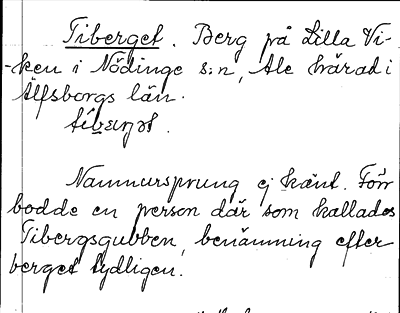 Tiberget. Berg på Lilla Vi-
-ken i Nödinge s:n, Ale härad i
Älfsborgs län.
Namnursprung ej känt. Förr
bodde en person där som kallades
Tibergsgubben, benämning efter
berget tydligen.